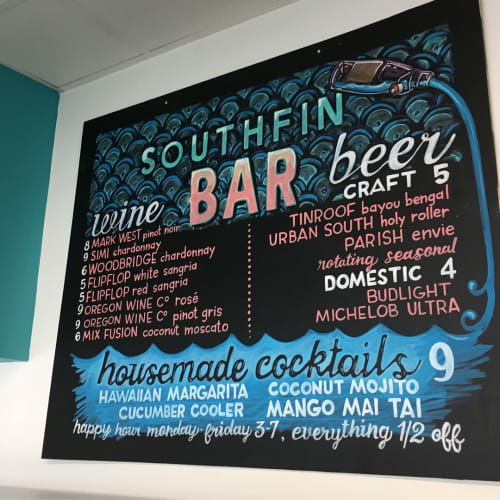 SOUTHFIN
BAR
wine
8 MARK WEST pinot noir
9 SIMI chardonnay
6 WOODBRIDGE chardonnay
5 FLIPFLOP white sangria
5 FLIPFLOP red sangria
9 OREGON WINE Cº rosé
9 OREGON WINE Cº pinot gris
6 MIX FUSION coconut moscato
beer
CRAFT 5
TINROOF bayou bengal
URBAN SOUTH holy roller
PARISH envie
rotating seasonal
DOMESTIC 4
BUDLIGHT
MICHELOB ULTRA
housemade cocktails 9
HAWAIIAN MARGARITA COCONUT MOJITO
CUCUMBER COOLER MANGO MAI TAI
happy hour monday-friday 3-7, everything 1/2 off